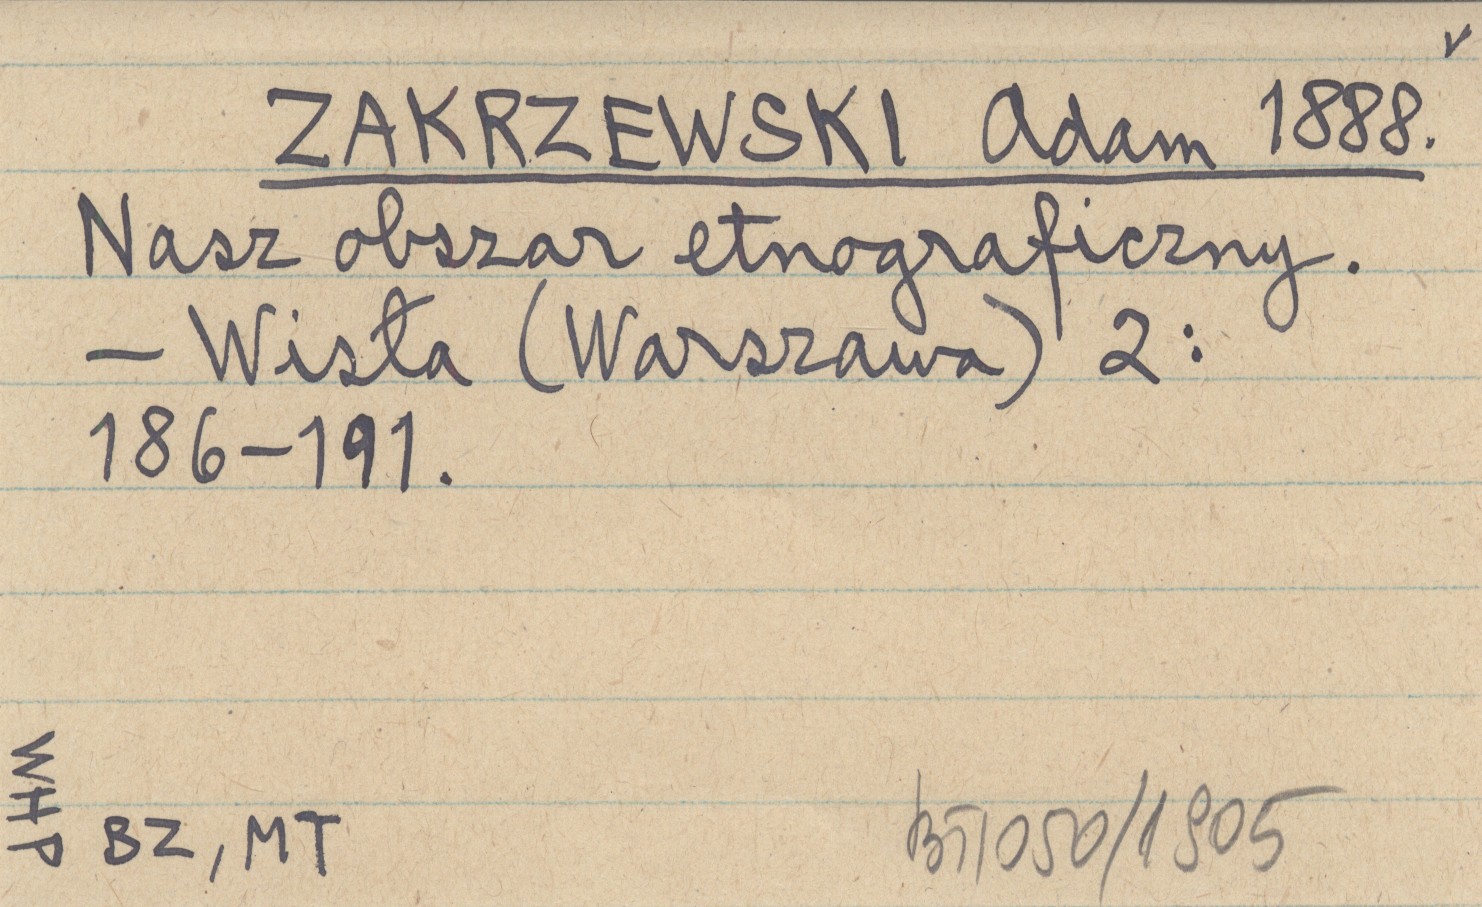 v
ZAKRZEWSKI Adam 1888.
Nasz obszar etnograficzny.
– Wisła (Warszawa) 2:
186–191.
WHP
BZ, MT